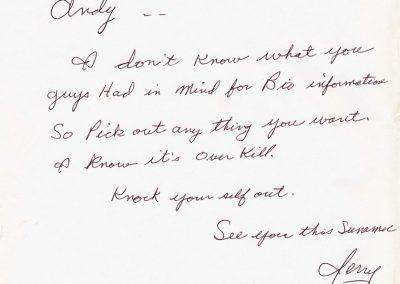 Andy --
I don't know what you
guys Had in mind for Bio information
So Pick out any thing you want.
I know it's over kill.
Knock your self out.
See you this Summer
Jerry